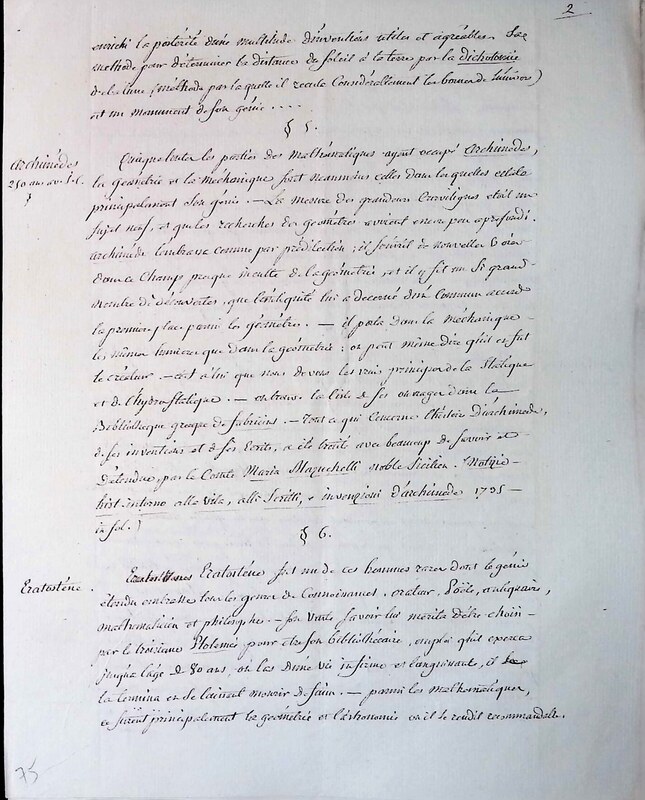 2
enrichi la postérité d'une multitude d'inventions utiles et agréables. Sa
methode pour déterminer la distance du Soleil à la terre par la dichotomie
de la lune (méthode par la quelle il recula Considérablement les bornes de l'univers)
est un monument de son génie ....
§ 5.
Archimédes
250 ans av. J.C.
Quoique toutes les parties des mathématiques ayent occupé Archimède,
la géometrie et la méchanique sont neanmoins celles dans les quelles éclata
principalement son génie. — La mesure des grandeurs Curvilignes etait un
sujet neuf, et que les recherches des géometres avoient encore peu aprofondi.
archimède l'embrassa comme par prédilection; il s'ouvrit de nouvelles Voies
dans ce Champ presque inculte de la géometrie, et il y fit un si grand
nombre de découvertes, que l'antiquité lui a décerné d'un Commun accord
la premiere place parmi les géometres. — il porta dans la méchanique
les mêmes lumieres que dans la géometrie; on peut même dire qu'il en fut
le créateur — c'est à lui que nous devons les vrais principes de la Statique
et de l'hydrostatique. — on trouve la liste de ses ouvrages dans la
Bibliotheque grecque de fabricius. — Tout ce qui Concerne l'histoire d'archimede,
de ses inventions et de ses Ecrits, a été traité avec beaucoup de savoir et
d'étendue, par le Comte Maria Mazuchelli noble Sicilien. (Notizie
hist. intorno alla vita, alli Scritti, e invenzioni d'archimede 1735
in fol.)
§ 6.
Eratostène.
Eratostène fut un de ces hommes rares dont le génie
étendu embrasse tous les genres de Connoissances. orateur, Poëte, antiquaire,
mathématicien et philosophe. — son vaste savoir lui merita d'être choisi
par le troisieme Ptolemée pour être son bibliothécaire, emploi qu'il exerça
jusqu'a l'age de 80 ans, où las d'une vie infirme et languissante, il
la termina en se laissant mourir de faim. — parmi les mathématiques,
ce furent principalement la géometrie et l'astronomie où il se rendit recommandable.
75